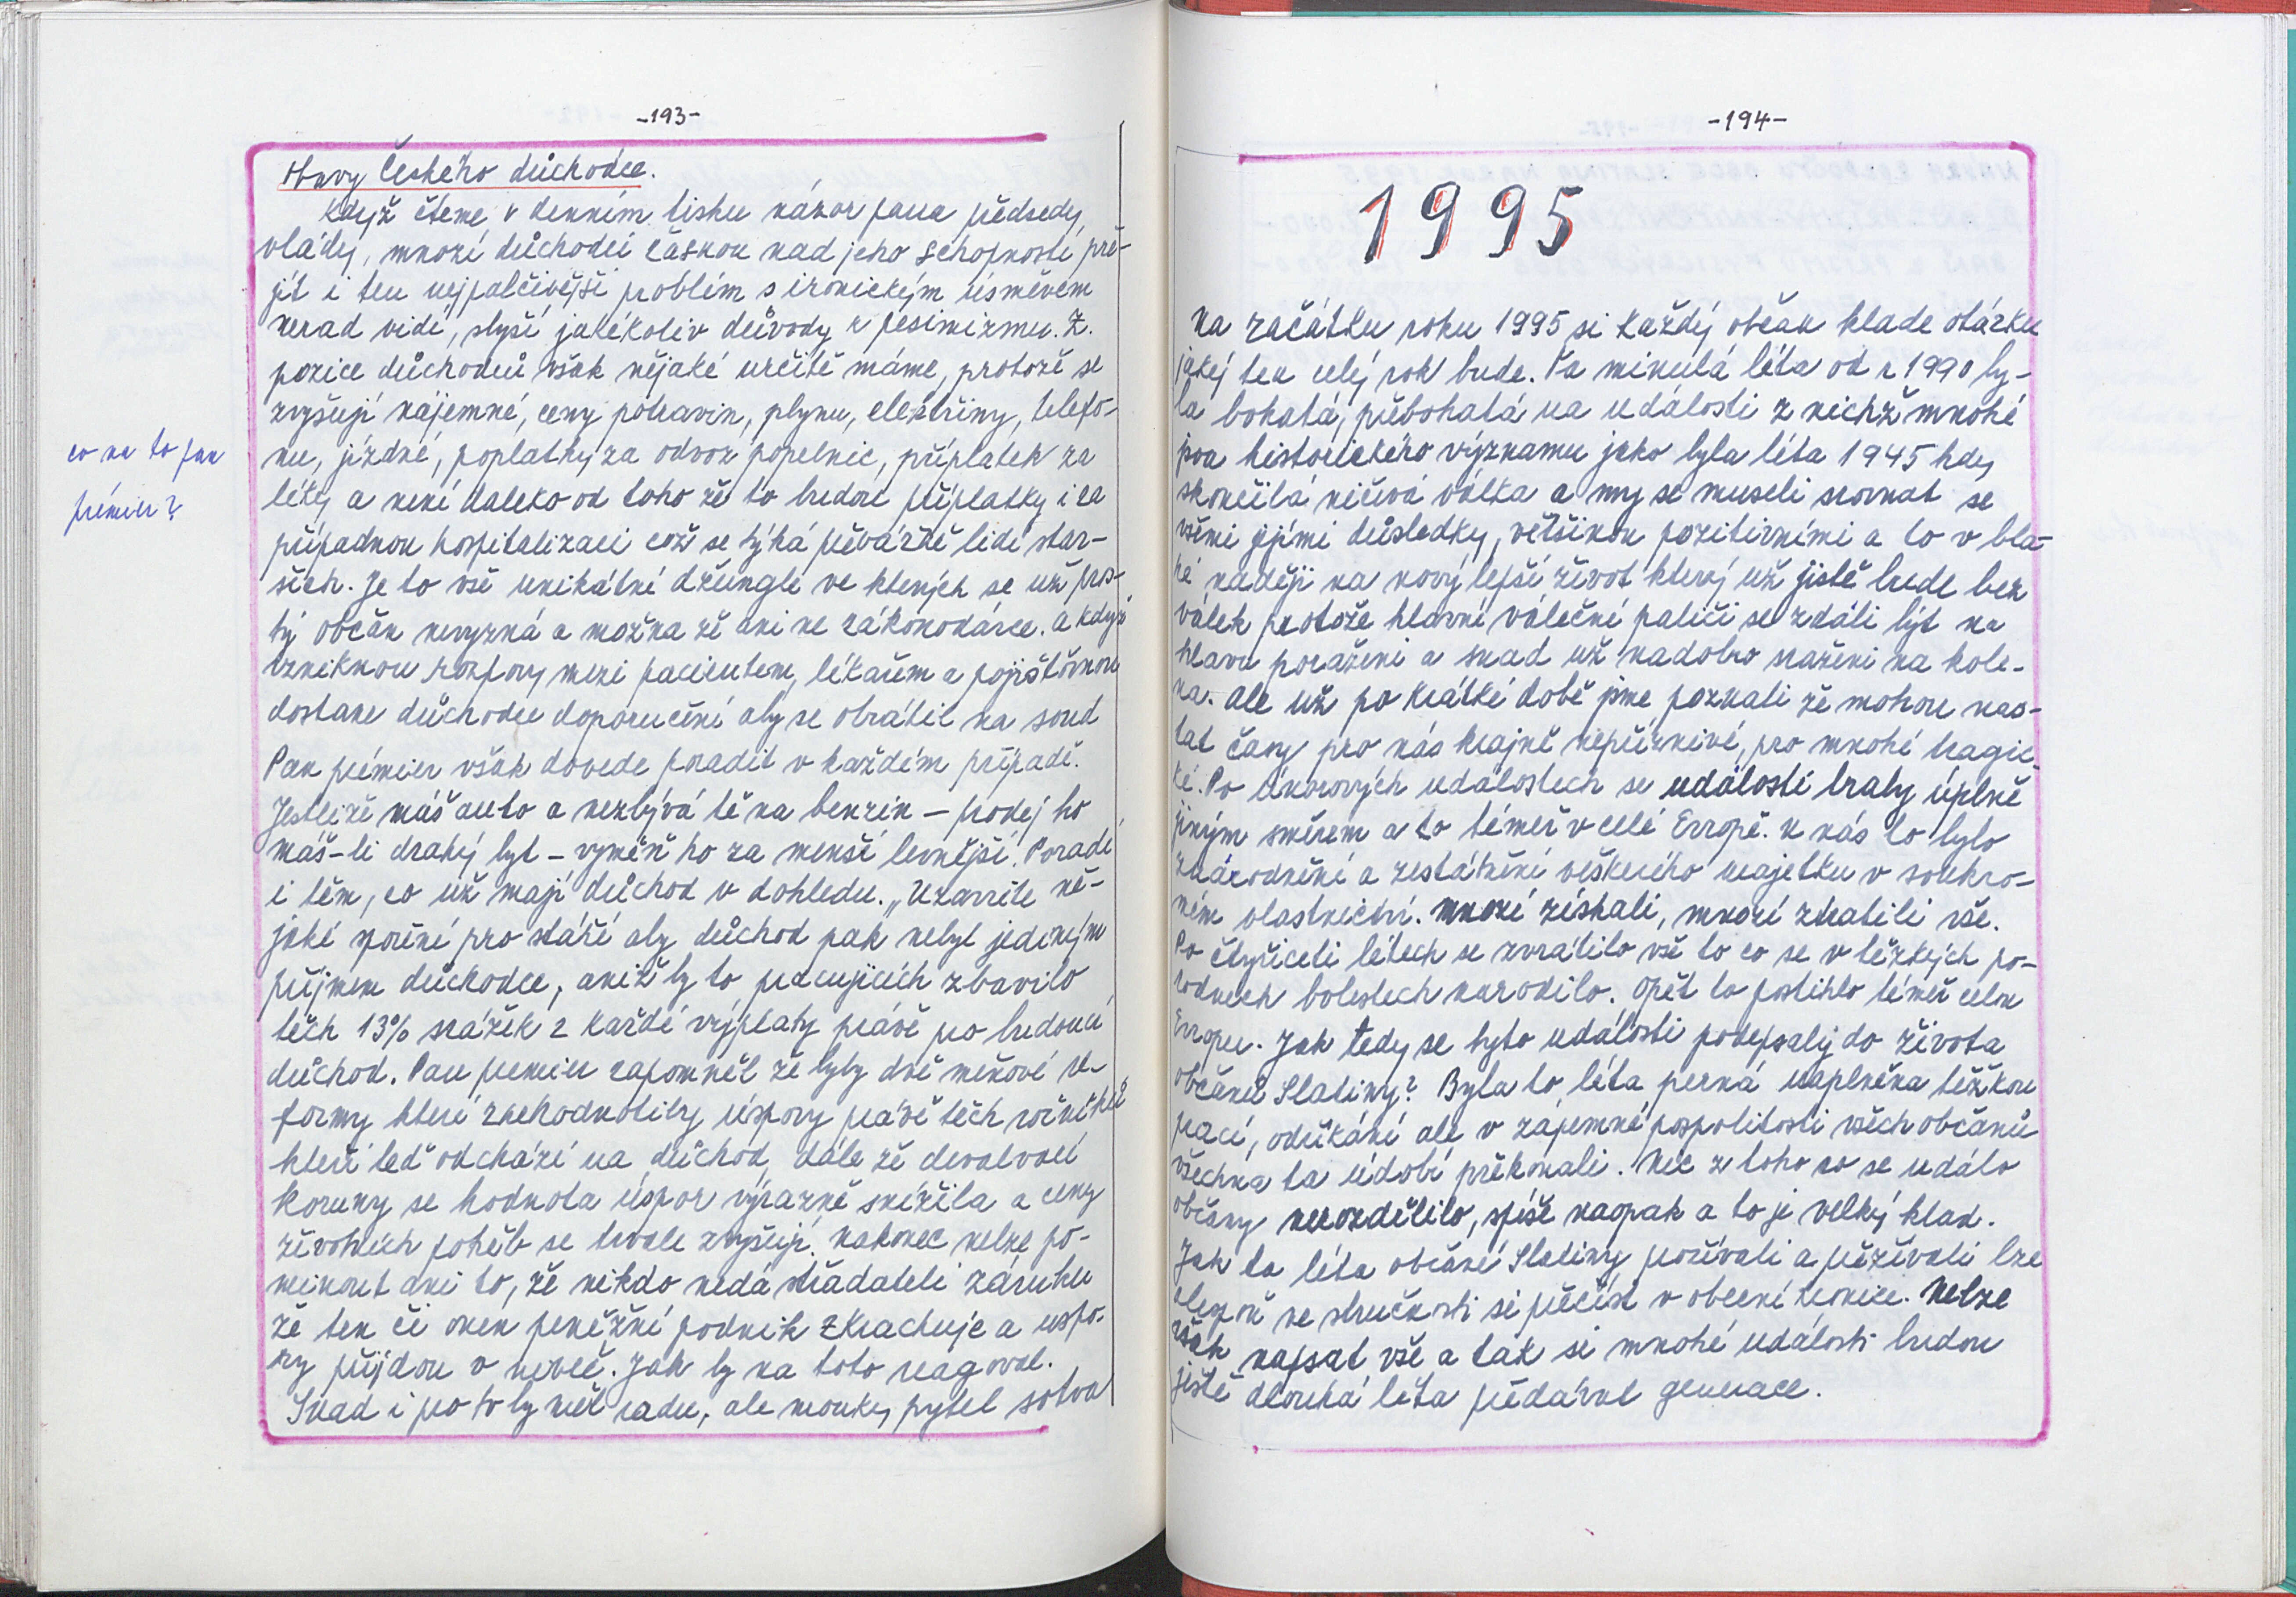 -193-
Obavy Českého důchodce.
Když čteme v denním tisku názor pana předsedy
vlády, mnozí důchodci žasnou nad jeho schopností pře-
jít i ten nejpalčivější problém s ironickým úsměvem
nerad vidí, slyší jakékoliv důvody k pesimizmu. Z.
pozice důchodců však nějaké určitě máme, protože se
zvyšují nájemné, ceny potravin, plynu, elektřiny, telefo-
nu, jízdné, poplatky za odvoz popelnic, příplatek za
léky a není daleko od toho že to budou příplatky i za
případnou hospitalizaci což se týká převážně lidí star-
ších. Je to vše unikátní džungle ve kterých se už pros-
tý občan nevyzná a možna že ani ne zákonodárce. a když
vzniknou rozpory mezi pacientem, lékařem a pojišťovnou
dostane důchodce doporučení aby se obrátil na soud
Pan prémier však dovede poradit v každém případě.
Jestliže máš auto a nezbývá tě na benzin - prodej ho
máš-li drahý byt - vyměň ho za menší levnější. Poradí
i těm, co už mají důchod v dohledu. „Uzavřete ně-
jaké spoření pro stáří aby důchod pak nebyl jediným
příjmem důchodce, aniž by to pracujících zbavilo
těch 13% srážek z každé výplaty právě pro budoucí
důchod. Pan premier zapomněl že byly dvě měnové re-
formy které znehodnotily úspory právě těch ročníků
kteří teď odchází na důchod, dále že devalvací
koruny se hodnota úspor výrazně snížila a ceny
životních potřeb se trvale zvyšují. Nakonec nelze po-
minout ani to, že nikdo nedá střadateli záruku
že ten či onen peněžní podnik zkrachuje a úspo-
ry přijdou v niveč. Jak by na toto reagoval.
Snad i pro to by měl radu, ale mouky pytel sotva
co na to pan
prémier?
-194-
1995
Na začátku roku 1995 si každý občan klade otázku
jaký ten celý rok bude. Ta minulá léta od r 1990 by-
la bohatá, přebohatá na události z nichž mnohé
jsou historického významu jako byla léta 1945 kdy
skončila ničivá válka a my se museli srovnat se
všemi jejími důsledky, většinou pozitivními a to v bla-
hé naději na nový lepší život který už jistě bude bez
válek protože hlavní váleční paliči se zdáli být na
hlavu poraženi a snad už nadobro sraženi na kole-
na. ale už po krátké době jsme poznali že mohou nas-
tat časy pro nás krajně nepříznivé, pro mnohé tragic-
ké. Po únorových událostech se události braly úplně
jiným směrem a to téměř v celé Evropě. u nás to bylo
znárodnění a zestátnění veškerého majetku v soukro-
ném vlastnictví. mnozí získali, mnozí ztratili vše.
Po čtyřiceti létech se zvrátilo vše to co se v těžkých po-
rodních bolestech narodilo. Opět to postihlo téměř celou
Evropu. Jak tedy se tyto události podepsaly do života
občanů Slatiny? Byla to léta perná naplněna těžkou
prací, odříkání ale v zájemné pospolitosti všech občanů
všechna ta údobí překonali. Nic z toho co se událo
občany nerozdělilo, spíše naopak a to je velký klad.
Jak ta léta občané Slatiny požívali a přežívali lze
alespoň ve stručnosti si přečíst v obecní kronice. Nelze
však napsat vše a tak si mnohé události budou
ještě dlouhá léta předávat generace.